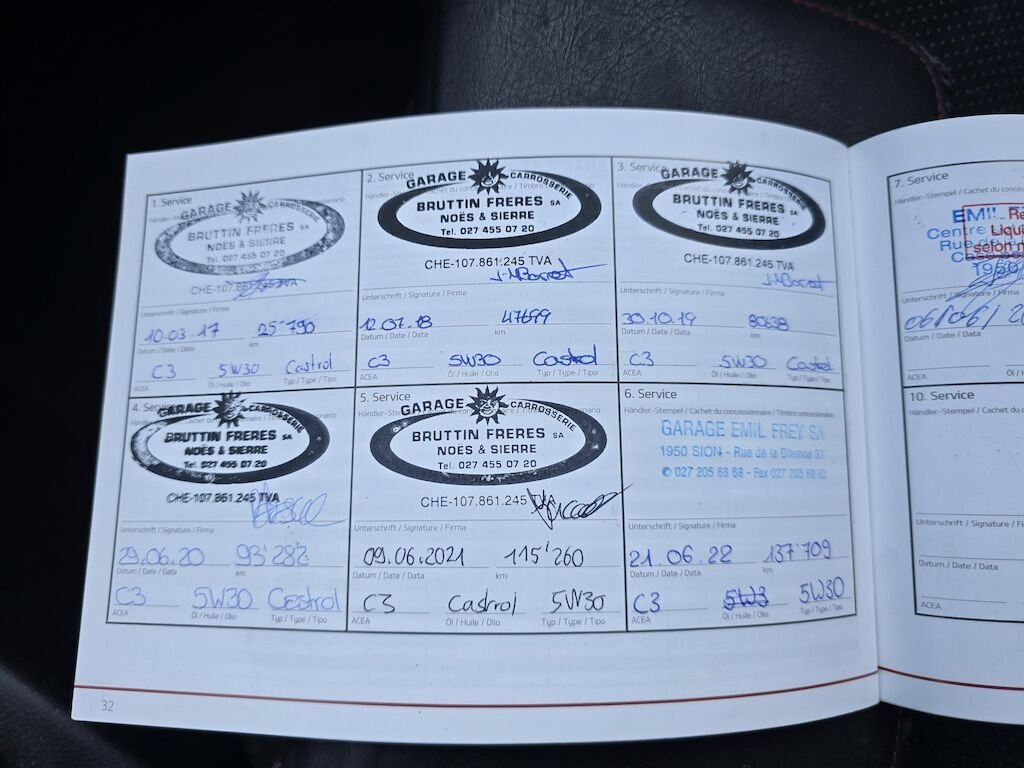 1. Service
GARAGE CARROSSERIE
BRUTTIN FRERES SA
NOËS & SIERRE
Tel. 027 455 07 20
CHE-107.861.245 TVA
Unterschrift / Signature / Firma
10.03.17 25'790
Datum / Date / Data km
C3 5W30 Castrol
ACEA Öl / Huile / Olio Typ / Type / Tipo
2. Service
GARAGE CARROSSERIE
BRUTTIN FRERES SA
NOËS & SIERRE
Tel. 027 455 07 20
CHE-107.861.245 TVA
Unterschrift / Signature / Firma
12.07.18 47699
Datum / Date / Data km
C3 5W30 Castrol
ACEA Öl / Huile / Olio Typ / Type / Tipo
3. Service
GARAGE CARROSSERIE
BRUTTIN FRERES SA
NOËS & SIERRE
Tel. 027 455 07 20
CHE-107.861.245 TVA
Unterschrift / Signature / Firma
30.10.19 80638
Datum / Date / Data km
C3 5W30 Castrol
ACEA Öl / Huile / Olio Typ / Type / Tipo
4. Service
GARAGE CARROSSERIE
BRUTTIN FRERES SA
NOËS & SIERRE
Tel. 027 455 07 20
CHE-107.861.245 TVA
Unterschrift / Signature / Firma
29.06.20 93'282
Datum / Date / Data km
C3 5W30 Castrol
ACEA Öl / Huile / Olio Typ / Type / Tipo
5. Service
GARAGE CARROSSERIE
BRUTTIN FRERES SA
NOËS & SIERRE
Tel. 027 455 07 20
CHE-107.861.245 TVA
Unterschrift / Signature / Firma
09.06.2021 115'260
Datum / Date / Data km
C3 Castrol 5W30
ACEA Öl / Huile / Olio Typ / Type / Tipo
6. Service
Händler-Stempel / Cachet du concessionnaire / Timbro concessionario
GARAGE EMIL FREY SA
1950 SION - Rue de la Dixence 83
✆ 027 205 68 68 - Fax 027 205 68
Unterschrift / Signature / Firma
21.06.22 137'709
Datum / Date / Data km
C3 5W3 5W30
ACEA Öl / Huile / Olio Typ / Type / Tipo
32
7. Service
Händler-Stempel / Cachet du
EMIL
Centre
Rue
Liqui
selon
Unterschrift / Signature / Firma
06/06/2
Datum / Date / Data
ACEA Öl / H
10. Service
Händler-Stempel / Cachet du
Unterschrift / Signature / Firma
Datum / Date / Data
ACEA Öl / H